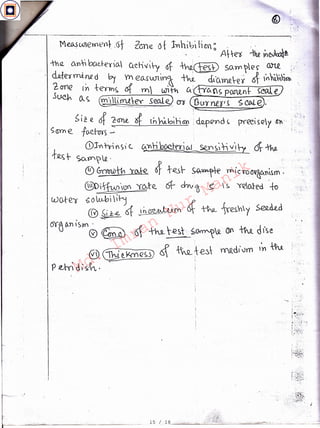 6
Measurement of Zone of Inhibition:
After the incubate
the antibacterial activity of the test samples are
determined by measuring the diameter of inhibition
zone in terms of ml with a transparent scale
such as millimeter scale or Burner's scale.
Size of zone of inhibition depends precisely on
some factors -
(i) Intrinsic antibacterial sensitivity of the
test sample.
(ii) Growth rate of test sample microorganism.
(iii) Diffusion rate of drug is related to
water solubility
(iv) Size of inoculum of the freshly seeded
organism.
(v) Conc. of the test sample on the disc
(vi) Thickness of the test medium in the
Petridish.
15 / 18